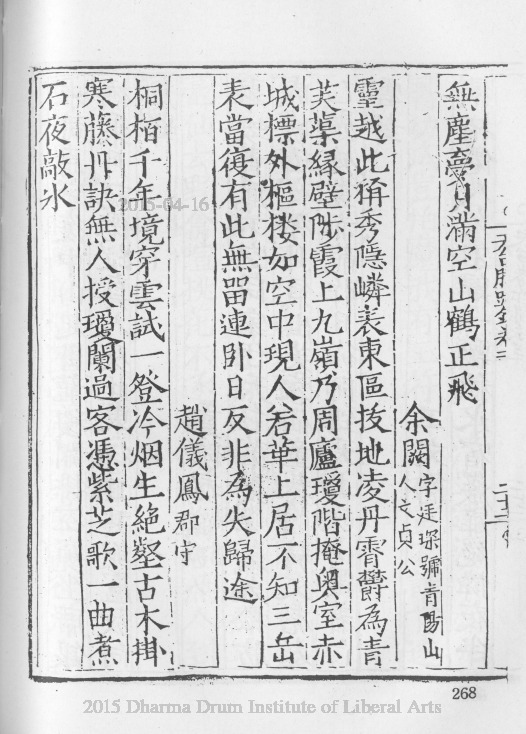 無塵夢月滿空山鶴正飛
余闕字廷琛號肯陽山人文貞公
靈越此稱秀隱嶙表東區抜地凌丹霄欝為青
芙蕖緣壁陟霞上九嶺乃周廬瓊階掩奥室赤
城標外樞楼如空中現人若華上居不知三岳
表當復有此無留連卧日反非為失歸途
趙儀鳳郡守
桐栢千年境穿雲試一登冷烟生絶壑古木掛
寒藤丹訣無人授瓊闌過客憑紫芝歌一曲煮
石夜敲氷
2015-04-16
268
2015 Dharma Drum Institute of Liberal Arts